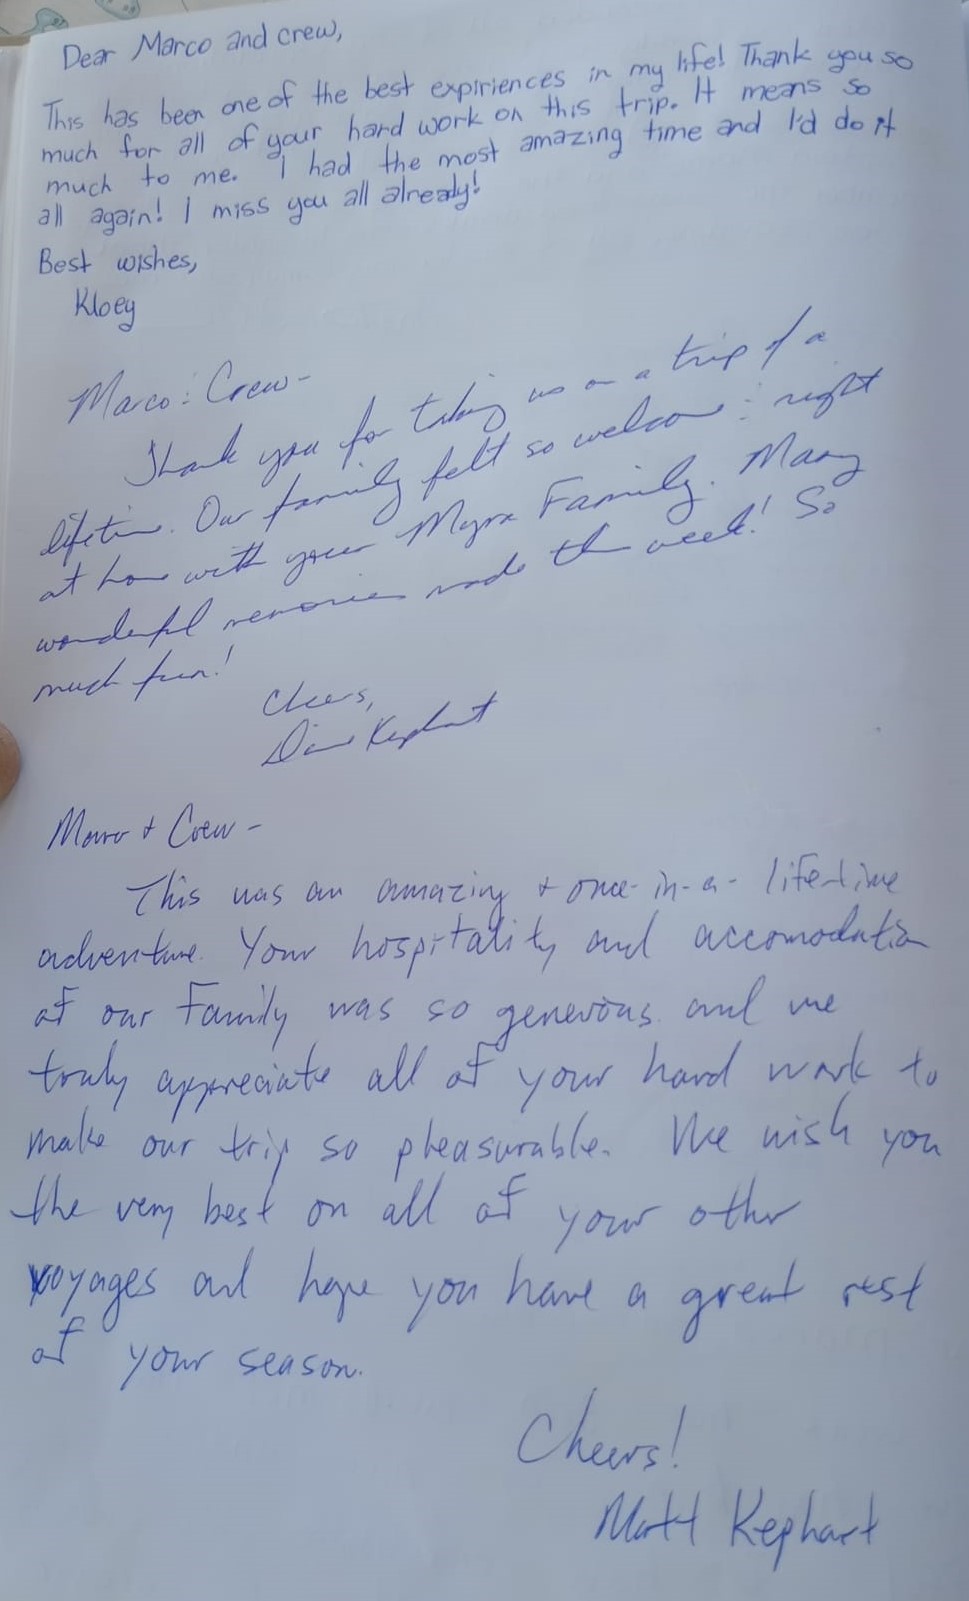 Dear Marco and crew,
This has been one of the best expiriences in my life! Thank you so
much for all of your hard work on this trip. It means so
much to me. I had the most amazing time and I'd do it
all again! I miss you all already!
Best wishes,
Kloey
Marco & Crew-
Thank you for taking us on a trip of a
lifetime. Our family felt so welcome & right
at home with your Myra Family. Many
wonderful memories made this week! So
much fun!
Cheers,
Kephart
Marco + Crew-
This was an amazing + once-in-a-lifetime
adventure. Your hospitality and accomodation
of our Family was so generous and we
truly appreciate all of your hard work to
make our trip so pleasurable. We wish you
the very best on all of your other
voyages and hope you have a great rest
of your season.
Cheers!
Matt Kephart